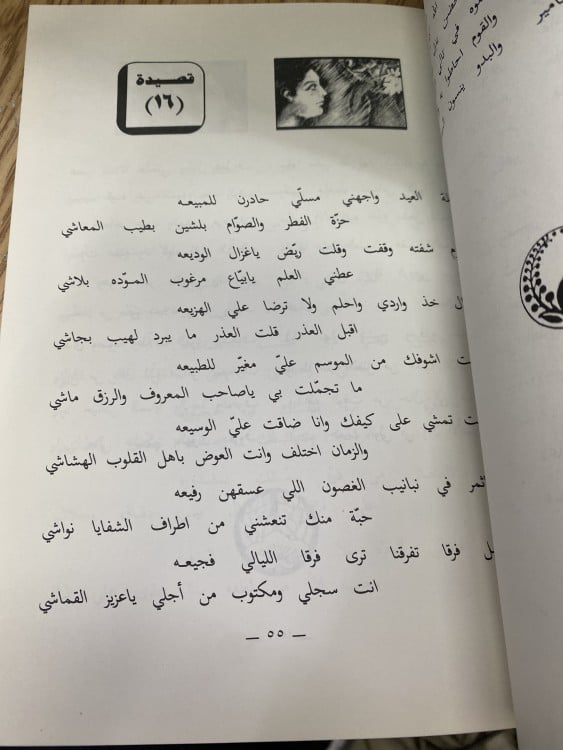 قصيدة
(١٦)
العيد واجهني مسلّي حادرن للمبيعه
حزّة الفطر والصوّام بلشين بطيب المعاشي
شفته وقفت وقلت ريّض ياغزال الوديعه
عطني العلم يابيّاع مرغوب المودّه بلاشي
خذ واردي واحلم ولا ترضا علي الهزيعه
اقبل العذر قلت العذر ما يبرد لهيب بجاشي
اشوفك من الموسم عليّ مغيّر للطبيعه
ما تجمّلت بي ياصاحب المعروف والرزق ماشي
تمشي على كيفك وانا ضاقت عليّ الوسيعه
والزمان اختلف وانت العوض باهل القلوب الهشاشي
في نبانيب الغصون اللي عسقهن رفيعه
حبّة منك تنعشني من اطراف الشفايا نواشي
فرقا تفرقنا ترى فرقا الليالي فجيعه
انت سجلي ومكتوب من أجلي ياعزيز القماشي
— ٥٥ —
والقوم
والبدو